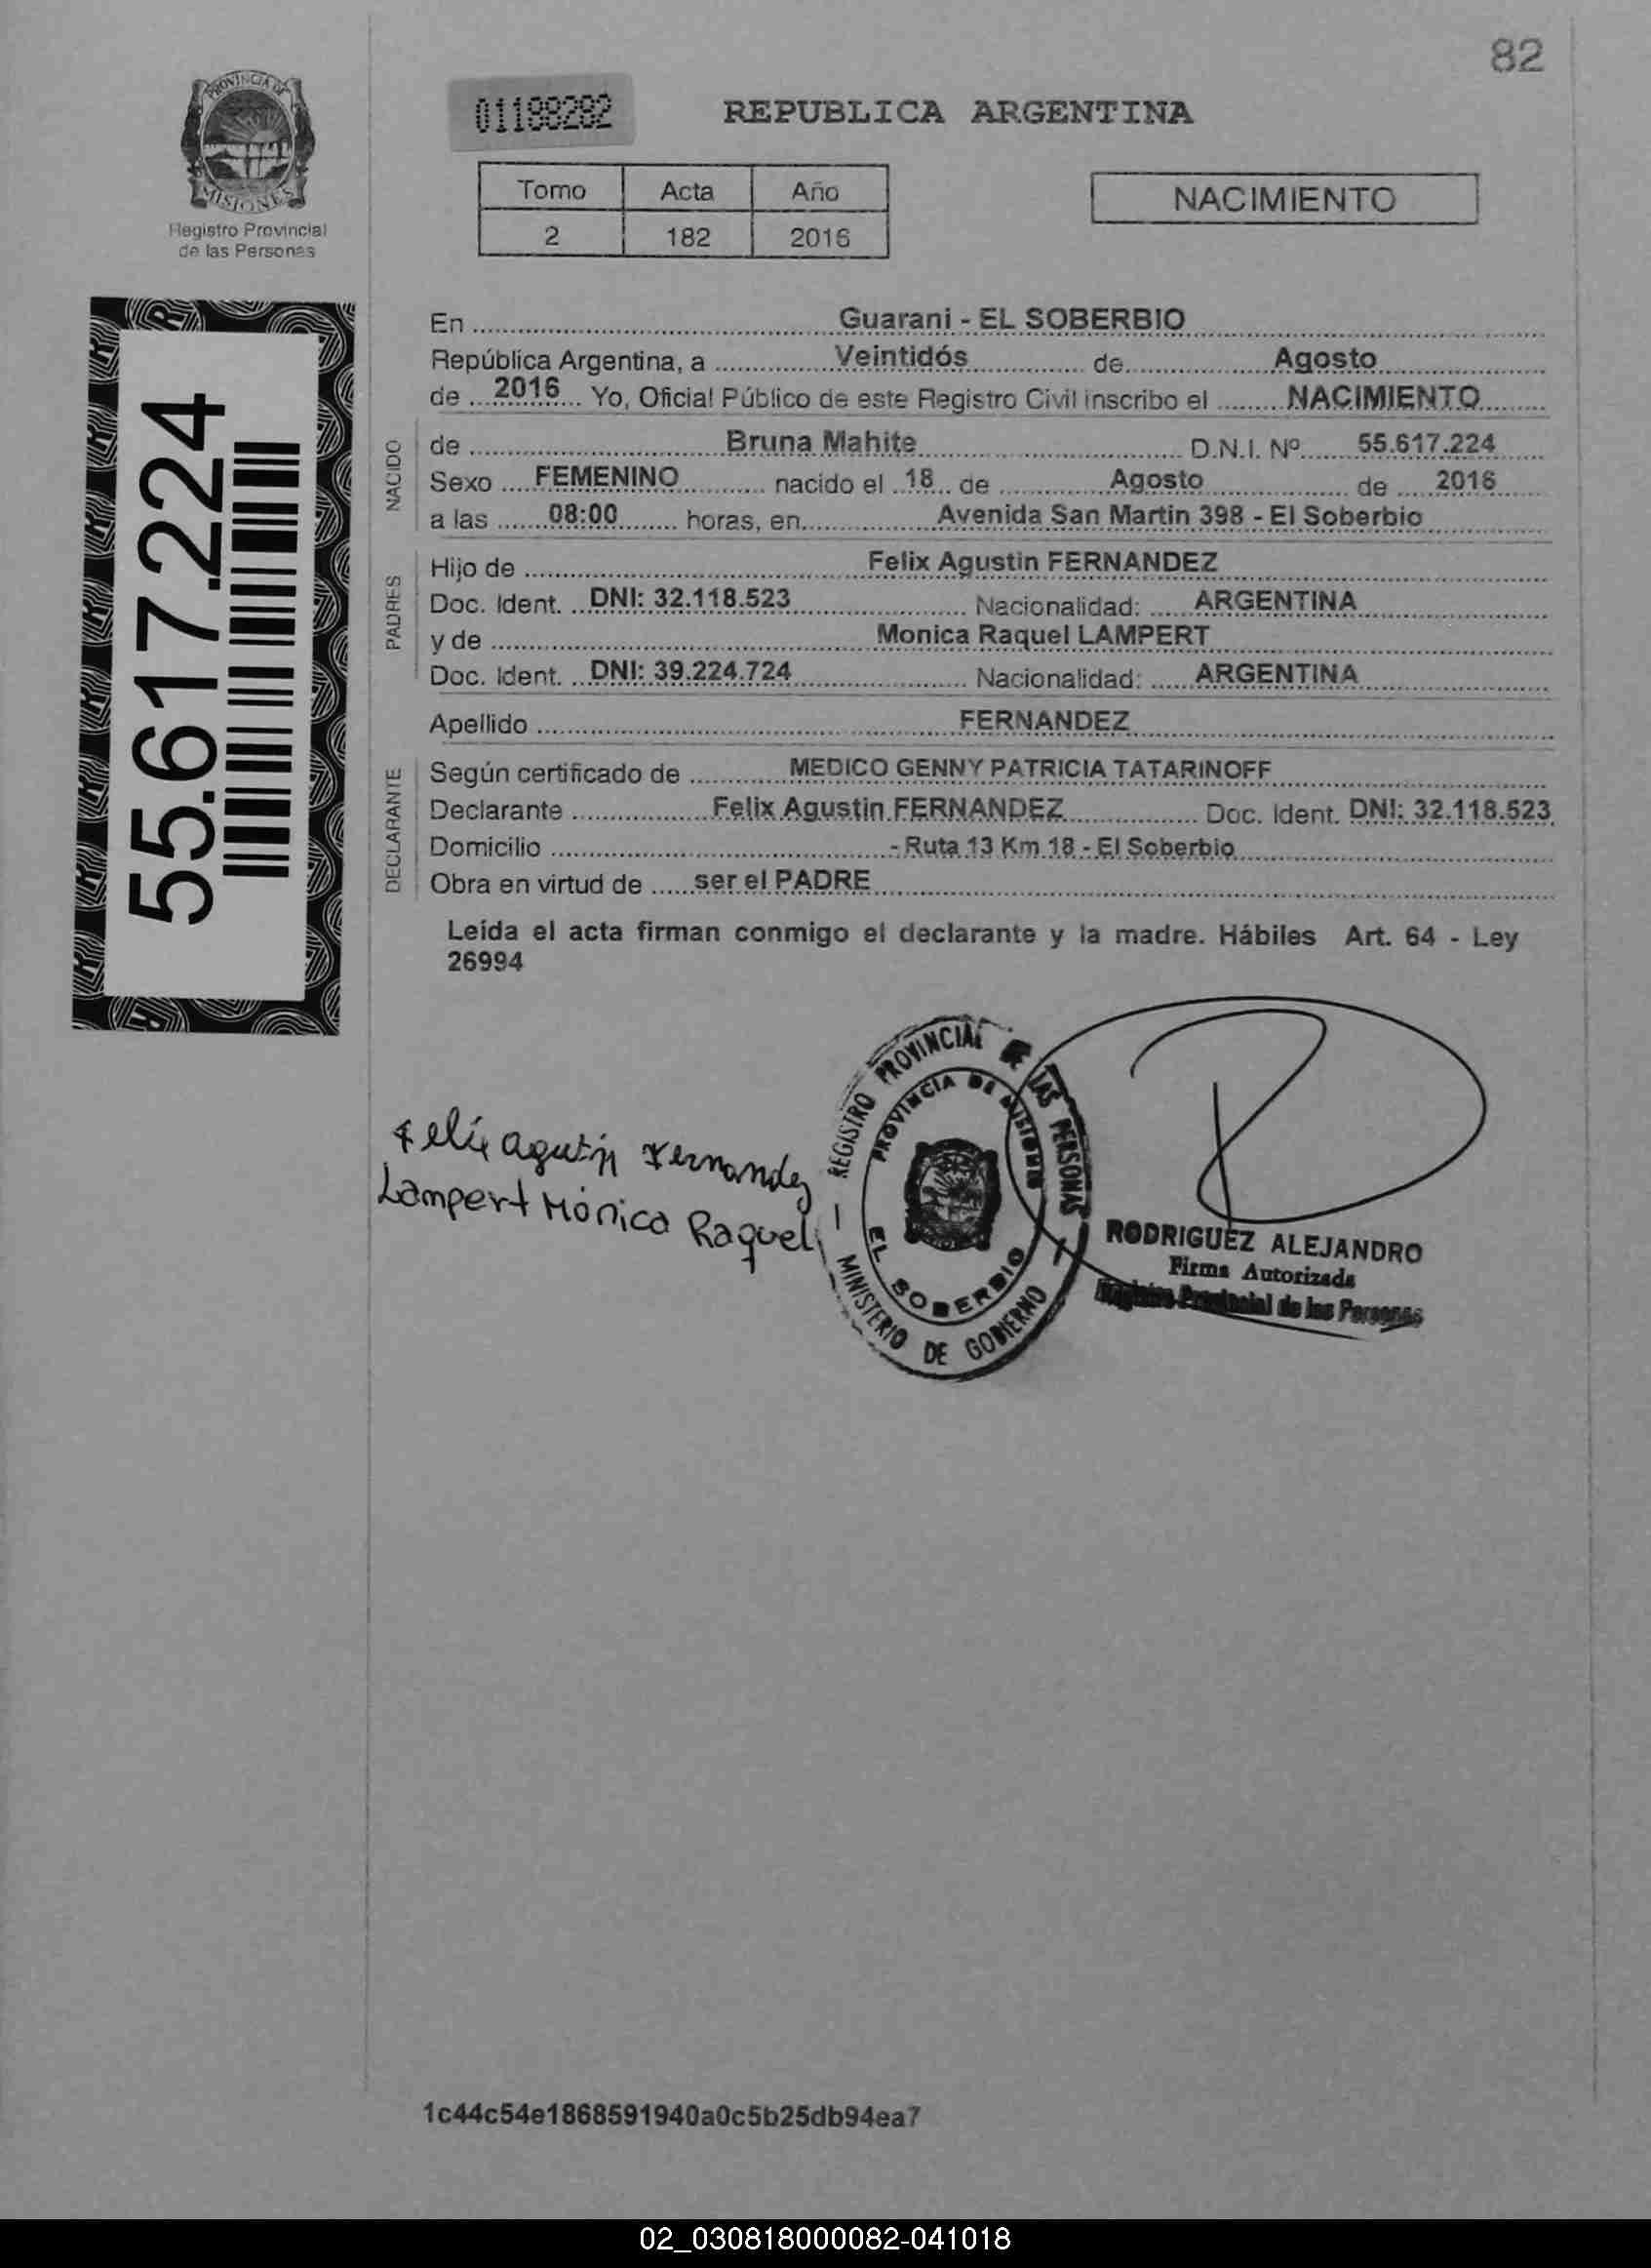 82
PROVINCIA DE
MISIONES
Registro Provincial
de las Personas
01198282
REPUBLICA ARGENTINA
Tomo Acta Año
2 182 2016
NACIMIENTO
55.617.224
En Guarani - EL SOBERBIO
República Argentina, a Veintidós de Agosto
de 2016 Yo, Oficial Público de este Registro Civil inscribo el NACIMIENTO
NACIDO
de Bruna Mahite D.N.I. Nº 55.617.224
Sexo FEMENINO nacido el 18 de Agosto de 2016
a las 08:00 horas, en Avenida San Martin 398 - El Soberbio
PADRES
Hijo de Felix Agustin FERNANDEZ
Doc. Ident. DNI: 32.118.523 Nacionalidad: ARGENTINA
y de Monica Raquel LAMPERT
Doc. Ident. DNI: 39.224.724 Nacionalidad: ARGENTINA
Apellido FERNANDEZ
DECLARANTE
Según certificado de MEDICO GENNY PATRICIA TATARINOFF
Declarante Felix Agustin FERNANDEZ Doc. Ident. DNI: 32.118.523
Domicilio - Ruta 13 Km 18 - El Soberbio
Obra en virtud de ser el PADRE
Leída el acta firman conmigo el declarante y la madre. Hábiles Art. 64 - Ley
26994
Felix Agustin Fernandez
Lampert Mónica Raquel
REGISTRO PROVINCIAL DE LAS PERSONAS
PROVINCIA DE MISIONES
EL SOBERBIO
MINISTERIO DE GOBIERNO
RODRIGUEZ ALEJANDRO
Firma Autorizada
Registro Provincial de las Personas
1c44c54e1868591940a0c5b25db94ea7
02_030818000082-041018